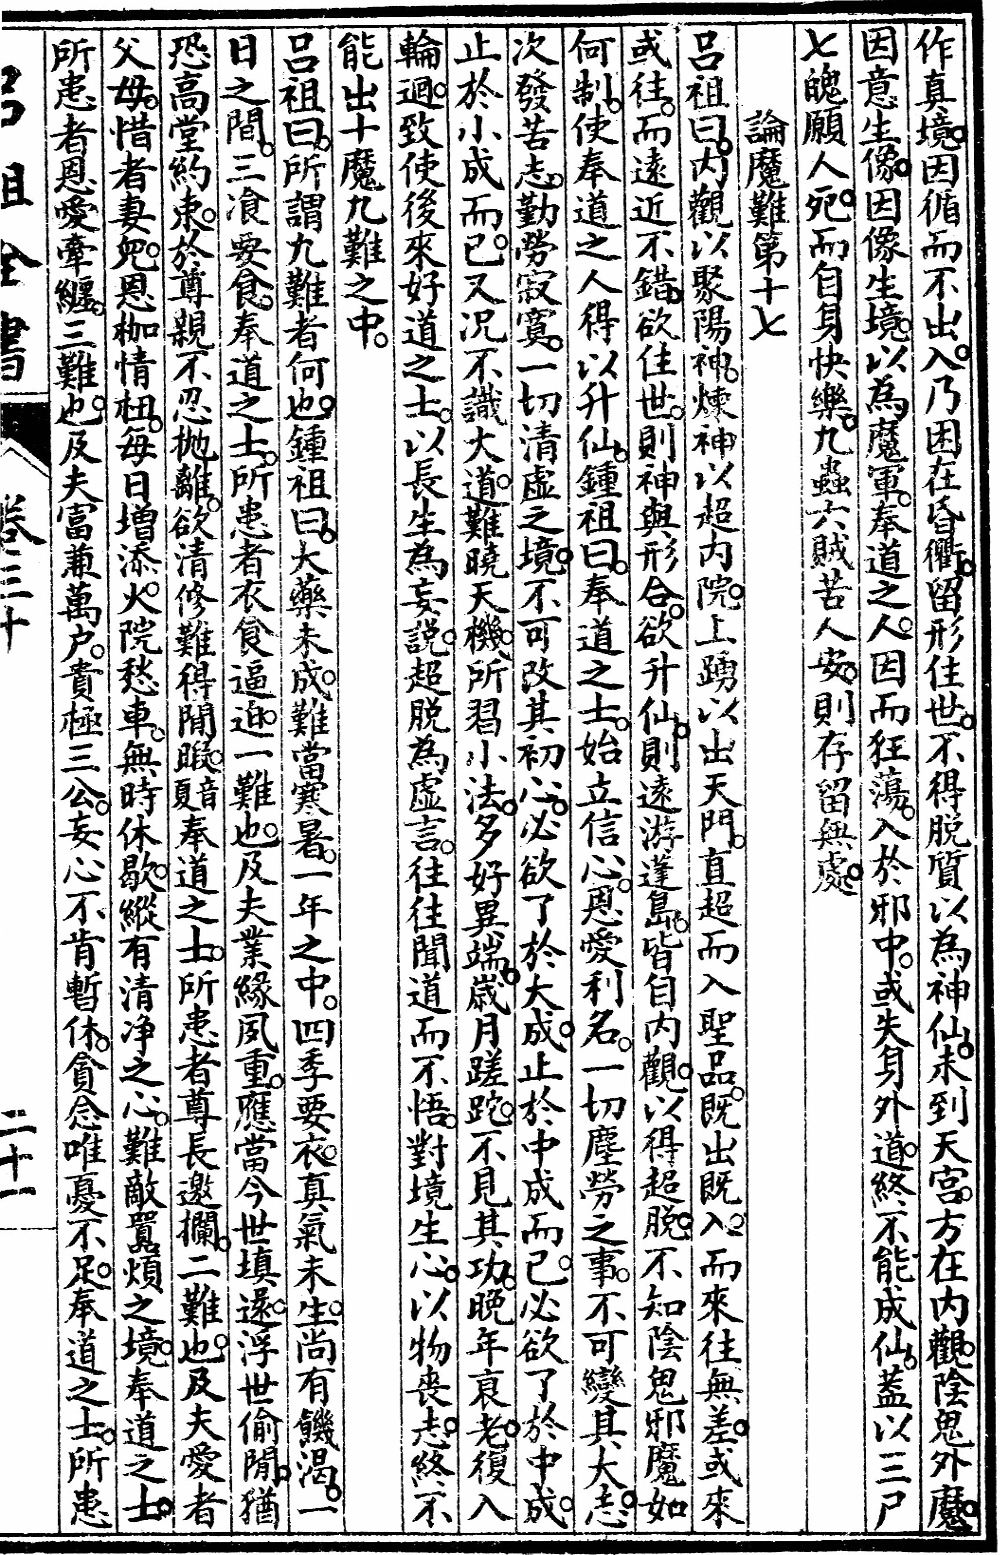 作真境。因循而不出入。乃困在昏衢。留形住世。不得脫質以為神仙。未到天宮。方在內觀。陰鬼外魔。
因意生像。因像生境。以為魔軍。奉道之人。因而狂蕩。入於邪中。或失身外道。終不能成仙。蓋以三尸
七魄願人死。而自身快樂。九蟲六賊苦人安。則存留無處。
論魔難第十七
呂祖曰。內觀以聚陽神。煉神以超內院。上踴以出天門。直超而入聖品。既出既入。而來往無差。或來
或往。而遠近不錯。欲住世。則神與形合。欲升仙。則遠游蓬島。皆自內觀。以得超脫。不知陰鬼邪魔如
何制。使奉道之人得以升仙。鍾祖曰。奉道之士。始立信心。恩愛利名。一切塵勞之事。不可變其大志。
次發苦志。勤勞寂寞。一切清虛之境。不可改其初心。必欲了於大成。止於中成而已。必欲了於中成。
止於小成而已。又況不識大道。難曉天機。所習小法。多好異端。歲月蹉跎。不見其功。晚年衰老。復入
輪迴。致使後來好道之士。以長生為妄說。超脫為虛言。往往聞道而不悟。對境生心。以物喪志。終不
能出十魔九難之中。
呂祖曰。所謂九難者何也。鍾祖曰。大藥未成。難當寒暑。一年之中。四季要衣。真氣未生。尚有饑渴。一
日之間。三飡要食。奉道之士。所患者衣食逼迫。一難也。及夫業緣夙重。應當今世填還。浮世偷閒。猶
恐高堂約束。於尊親不忍拋離。欲清修難得閒暇。奉道之士。所患者尊長邀攔。二難也。及夫愛者
父母。惜者妻兒。恩枷情杻。每日增添。火院愁車。無時休歇。縱有清净之心。難敵囂煩之境。奉道之士
所患者恩愛牽纏。三難也。及夫富兼萬户。貴極三公。妄心不肯暫休。貪念唯憂不足。奉道之士。所患
呂祖全書
卷三十
二十一